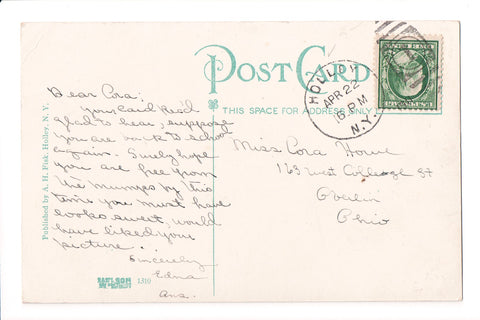 POST CARD
THIS SPACE FOR ADDRESS ONLY
HOLLEY
APR 22
6 PM
N.Y.
Dear Cora:
Your card rec'd
glad to hear, suppose
you are back to school
again. Surely hope
you are free from
the mumps by this
time you must have
looked sweet, would
have liked your
picture.
Sincerely
Edna
Ans.
Miss Cora Howe
163 West College St
Oberlin
Ohio
Published by A. H. Fisk, Holley, N. Y.
1310